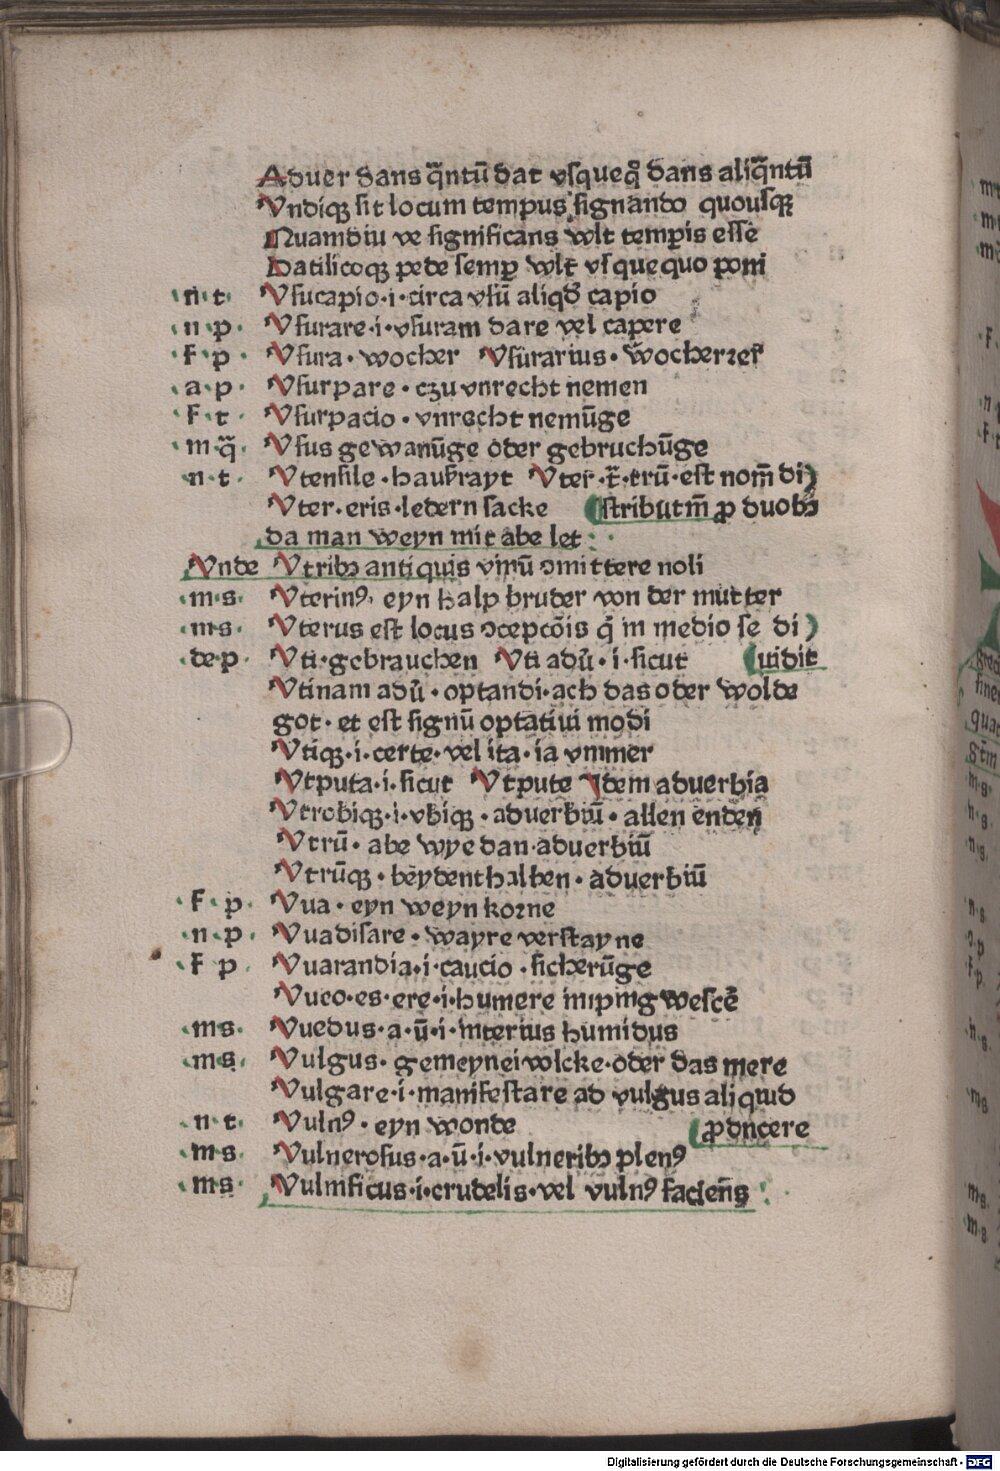 Aduer dans q̄ntū dat vsqueqů dans aliq̄ntū
Vndiqꝫ sit locum tempus signando quousqꝫ
Quamdiu ve significans wlt temꝑis esse
Datilicoqꝫ pede semꝑ wlt vsquequo poni
·n·t· Vsucapio·i·circa vsū aliqd̛ capio
·n·p· Vsurare·i·vsuram dare vel capere
·f·p· Vsura· wocher Vsurarius· wocherꝛer
·a·p· Vsurpare· czu vnrecht nemen
·f·t· Vsurpacio· vnrecht nemūge
·m·q̄· Vsus gewanūge oder gebruchūge
·n·t· Vtensile·hausrayt Vter·t̄·trū·est nom̄ di)
Vter·eris·ledern sacke (stributm̄ ꝓ duobꝫ
da man weyn mit abe let:
Vnde Vtribꝫ antiquis vinū ꝯmittere noli
·m·s· Vterinꝰ, eyn halp bruder von der mutter
·m·s· Vterus est locus ꝯcepcōis q̄ in medio se di)
·de·p· Vti·gebrauchen Vti adū·i·sicut (uidit
Vtinam adū·optandi·ach das oder wolde
got·et est signū optatiui modi
Vtiqꝫ·i·certe·vel ita·ia ymmer
Vtputa·i·sicut Vtpute Idem aduerbia
Vtrobiqꝫ·i·vbiqꝫ·aduerbiū·allen enden
Vtrū·abe wye dan·aduerbiū
Vtrūqꝫ·beydenthalben·aduerbiū
·f·p· Vua·eyn weyn korne
·n·p· Vuadisare·wayre verstayne
·f p· Vuarandia·i·caucio·sicherūge
Vuco·es·ere·i·humere
·m·s· Vuedus·a·ū·i·interius humidus
·m·s· Vulgus·gemeynei volcke·oder das mere
Vulgare·i·manifestare ad vulgus aliquid
·n·t· Vulnꝰ·eyn wonde (ꝓducere
·m·s· Vulnerosus·a·ū·i·vulneribꝫ plenꝰ
·m·s· Vulnificus·i·crudelis·vel vulnꝰ faciens:
Digitalisierung gefördert durch die Deutsche Forschungsgemeinschaft - DFG